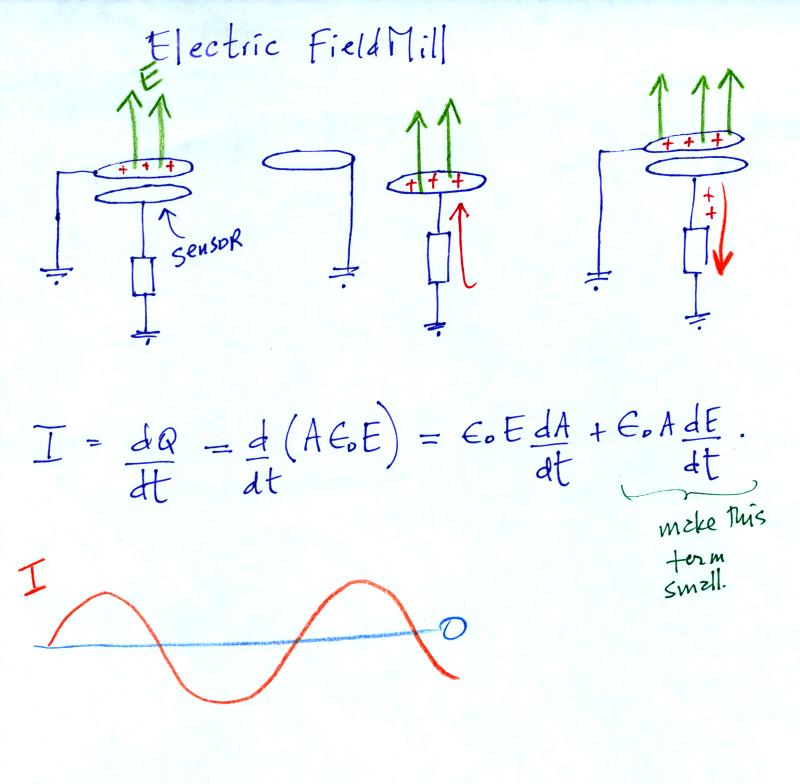 Electric Field Mill
E
+ + +
+ + +
+ + +
+
+
sensor
I = dQ/dt = d/dt (A ϵ₀ E) = ϵ₀ E dA/dt + ϵ₀ A dE/dt .
make this
term
small.
I
0